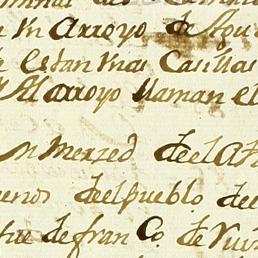 Un Arroyo de Agu
estan unas Casillas
Al arroyo llaman el
En merzed de el A
uenos de el pueblo de
fue de fran Co. de